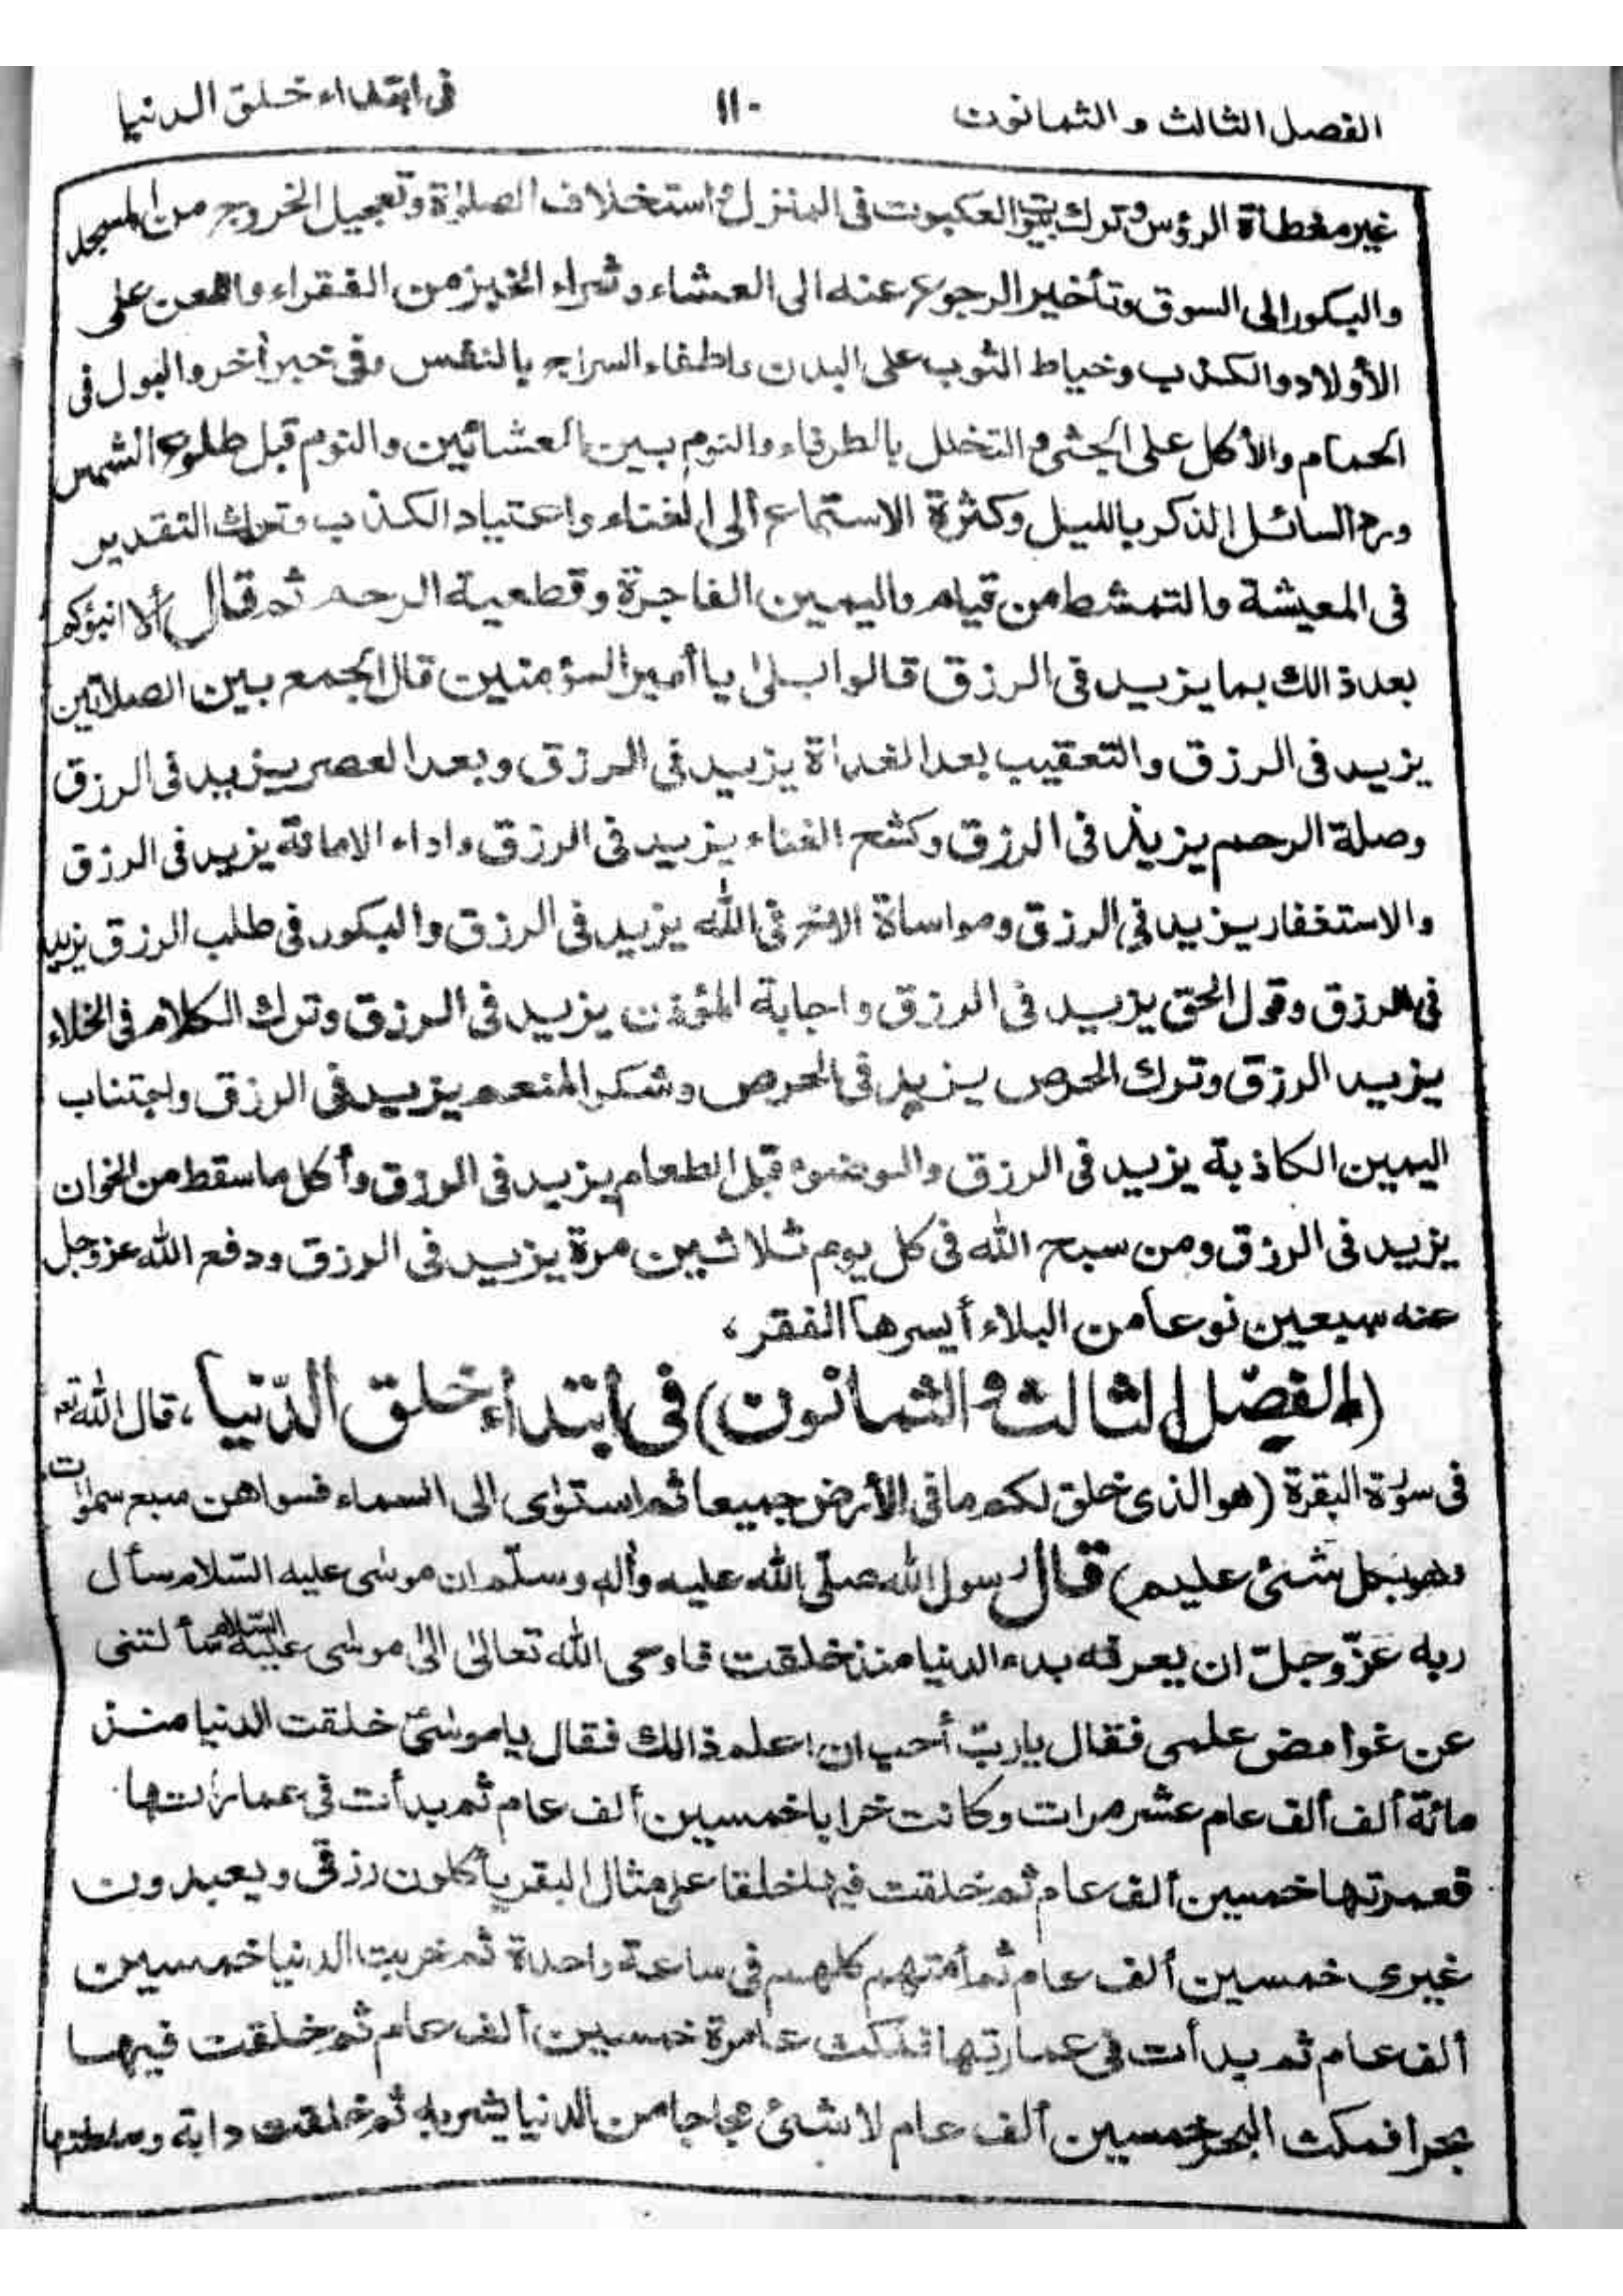 الفصل الثالث و الثمانون ١١٠ فى ابتداء خلق الدنيا
غير مغطاة الرؤس وترك بيوت العكبوت فى المنزل استخلاف الصلوٰة وتعجيل الخروج من المسجد
والبكور الى السوق وتأخير الرجوع عنه الى العشاء وشراء الخبز من الفقراء واللعن على
الأولاد والكذب وخياط الثوب على البدن واطفاء السراج بالنفس وفى خبر أخر والبول فى
الحمام والأكل على الجشى والتخلل بالطرفاء والنوم بين العشائين والنوم قبل طلوع الشمس
ورد السائل الذكر بالليل وكثرة الاستماع ألى الغناء واعتياد الكذب وترك التقدير
فى المعيشة والتمشط من قيام واليمين الفاجرة وقطعية الرحم ثم قال ألا انبؤكم
بعد ذالك بما يزيد فى الرزق قالوا بلىٰ يا أمير المؤمنين قال الجمع بين الصلاتين
يزيد فى الرزق والتعقيب بعد الغداة يزيد فى الرزق وبعد العصر يزيد فى الرزق
وصلة الرحم يزيد فى الرزق وكشح الغناء يزيد فى الرزق واداء الامانة يزيد فى الرزق
والاستغفار يزيد فى الرزق ومواساة الاخ فى الله يزيد فى الرزق والبكور فى طلب الرزق يزيد
فى الرزق وقول الحق يزيد فى الرزق واجابة المؤذن يزيد فى الرزق وترك الكلام فى الخلاء
يزيد الرزق وترك الحرص يزيد فى الحرص وشكر المنعم يزيد فى الرزق واجتناب
اليمين الكاذبة يزيد فى الرزق والوضوء قبل الطعام يزيد فى الرزق وأكل ما سقط من الخوان
يزيد فى الرزق ومن سبح الله فى كل يوم ثلاثين مرة يزيد فى الرزق ودفع الله عزوجل
عنه سبعين نوعا من البلاء أيسرها الفقر،
(الفصل الثالث و الثمانون) فى ابتداء خلق الدّنيا، قال الله تع
فى سورة البقرة (هو الذى خلق لكم ما فى الأرض جميعا ثم استوٰى الى السماء فسواهن سبع سمٰوات
وهو بكل شئ عليم) قال رسول الله صلّى الله عليه وأله وسلّم ان موسى عليه السّلام سأل
ربه عزّ وجلّ ان يعرفه بدء الدنيا منذ خلقت فاوحى الله تعالىٰ الىٰ موسى عليه السّلام سألتنى
عن غوامض علمى فقال يا ربّ أحب ان اعلم ذالك فقال يا موسىٰ خلقت الدنيا منذ
مائة ألف ألف عام عشر مرات وكانت خرابا خمسين ألف عام ثم بدأت فى عمارتها
فعمرتها خمسين ألف عام ثم خلقت فيها خلقا على مثال البقر يأكلون رزقى ويعبدون
غيرى خمسين ألف عام ثم أمتهم كلهم فى ساعة واحدة ثم خربت الدنيا خمسين
ألف عام ثم بدأت فى عمارتها فمكث عامرة خمسين ألف عام ثم خلقت فيها
بحرا فمكث البحر خمسين ألف عام لا شئ مجاجا من الدنيا يشربه ثم خلقت دابة وسلطتها